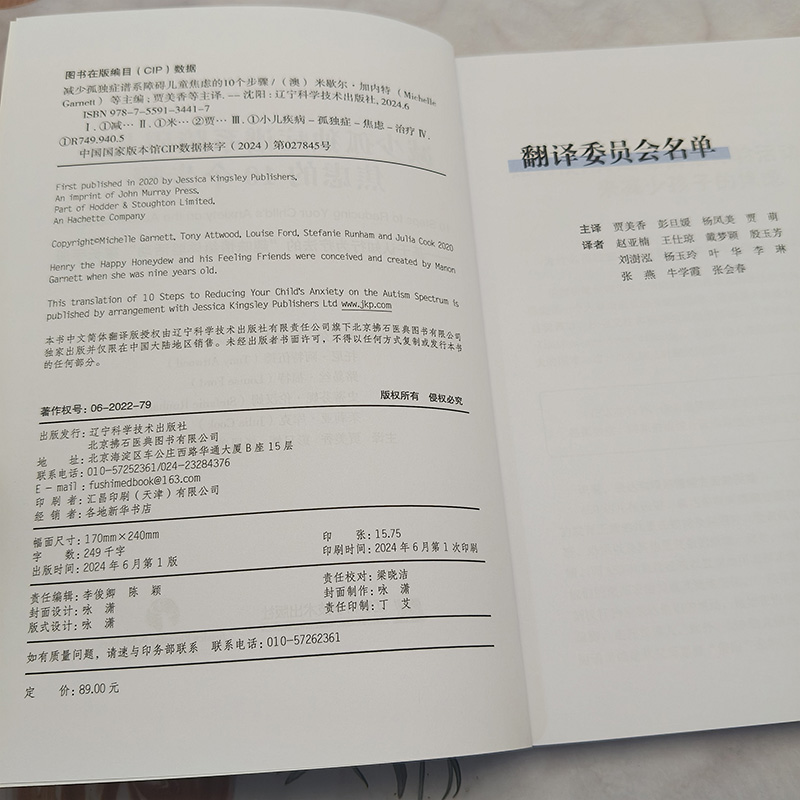 图书在版编目（CIP）数据
减少孤独症谱系障碍儿童焦虑的10个步骤 /（澳）米歇尔·加内特（Michelle
Garnett）等主编；贾美香等主译. -- 沈阳：辽宁科学技术出版社, 2024.6
ISBN 978-7-5591-3441-7
Ⅰ.①减… Ⅱ.①米… ②贾… Ⅲ.①小儿疾病－孤独症－焦虑－治疗 Ⅳ.
①R749.940.5
中国国家版本馆CIP数据核字（2024）第027845号
First published in 2020 by Jessica Kingsley Publishers,
An imprint of John Murray Press,
Part of Hodder & Stoughton Limited,
An Hachette Company
Copyright©Michelle Garnett, Tony Attwood, Louise Ford, Stefanie Runham and Julia Cook 2020
Henry the Happy Honeydew and his Feeling Friends were conceived and created by Manon
Garnett when she was nine years old.
This translation of 10 Steps to Reducing Your Child's Anxiety on the Autism Spectrum is
published by arrangement with Jessica Kingsley Publishers Ltd www.jkp.com
本书中文简体翻译版授权由辽宁科学技术出版社有限责任公司旗下北京拂石医典图书有限公司
独家出版并仅限在中国大陆地区销售。未经出版者书面许可，不得以任何方式复制或发行本书
的任何部分。
著作权号：06-2022-79 版权所有 侵权必究
出版发行：辽宁科学技术出版社
北京拂石医典图书有限公司
地 址：北京海淀区车公庄西路华通大厦B座15层
联系电话：010-57252361/024-23284376
E - mail：fushimedbook@163.com
印 刷 者：汇昌印刷（天津）有限公司
经 销 者：各地新华书店
幅面尺寸：170mm×240mm
字 数：249千字 印 张：15.75
出版时间：2024年6月第1版 印刷时间：2024年6月第1次印刷
责任编辑：李俊卿 陈 颖 责任校对：梁晓洁
封面设计：咏 潇 封面制作：咏 潇
版式设计：咏 潇 责任印制：丁 艾
如有质量问题，请速与印务部联系 联系电话：010-57262361
定 价：89.00元
翻译委员会名单
主译 贾美香 彭旦媛 杨凤美 贾 萌
译者 赵亚楠 王仕琼 戴梦颖 殷玉芳
刘澍泓 杨玉玲 叶 华 李 琳
张 燕 牛学霞 张会春